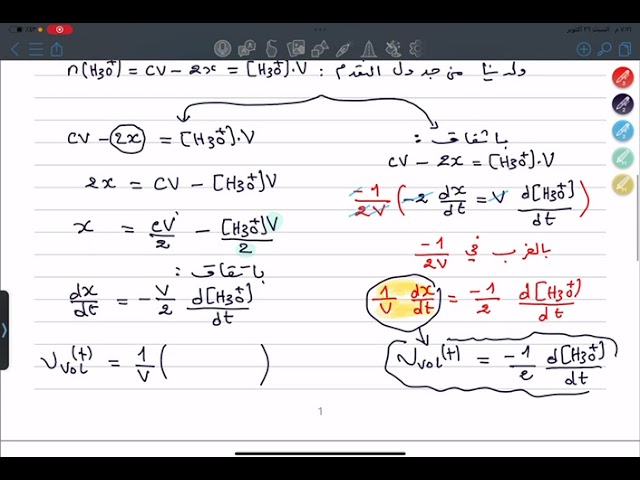 ٧:٢٦ م السبت ٢٦ أكتوبر
ولدينا من جدول التقدم : n(H3O+) = CV - 2x = [H3O+].V
CV - 2x = [H3O+].V
2x = CV - [H3O+]V
x = CV/2 - [H3O+]V/2
باشتقاق :
dx/dt = -V/2 d[H3O+]/dt
Vvol(t) = 1/V ( )
باشتقاق :
CV - 2x = [H3O+].V
-1/2V (-2 dx/dt = V d[H3O+]/dt)
بالضرب في -1/2V
1/V dx/dt = -1/2 d[H3O+]/dt
Vvol(t) = -1/2 d[H3O+]/dt
1